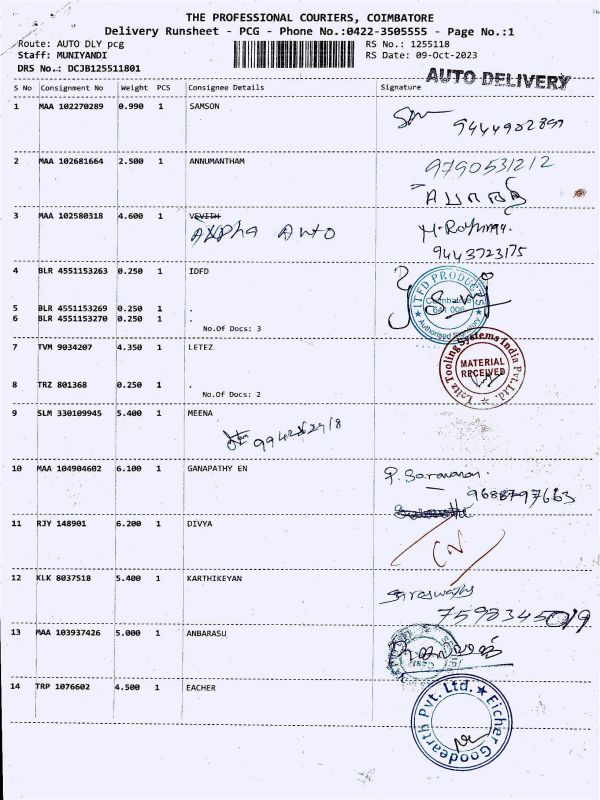 THE PROFESSIONAL COURIERS, COIMBATORE
Delivery Runsheet - PCG - Phone No.:0422-3505555 - Page No.:1
Route: AUTO DLY pcg
RS No.: 1255118
Staff: MUNIYANDI
RS Date: 09-Oct-2023
DRS No.: DCJB125511801
AUTO DELIVERY
S No Consignment No Weight PCS Consignee Details Signature
1 MAA 102270289 0.990 1 SAMSON
9444902897
2 MAA 102681664 2.500 1 ANNUMANTHAM
9790531212
3 MAA 102580318 4.600 1 VEVITH
Alpha Auto
9443723175
4 BLR 4551153263 0.250 1 IDFD
ITFD PRODUCTS
Coimbatore
641 006
Authorised Signatory
5 BLR 4551153269 0.250 1 .
6 BLR 4551153270 0.250 1 .
No.Of Docs: 3
7 TVM 9034207 4.350 1 LETEZ
Leitz Tooling Systems India Pvt. Ltd.
MATERIAL
RECEIVED
8 TRZ 801368 0.250 1 .
No.Of Docs: 2
9 SLM 330109945 5.400 1 MEENA
10 MAA 104904602 6.100 1 GANAPATHY EN
P. Saravanan.
9688797663
11 RJY 148901 6.200 1 DIVYA
12 KLK 8037518 5.400 1 KARTHIKEYAN
Saraswathy
13 MAA 103937426 5.000 1 ANBARASU
14 TRP 1076602 4.500 1 EACHER
Eicher Goodearth Pvt. Ltd.